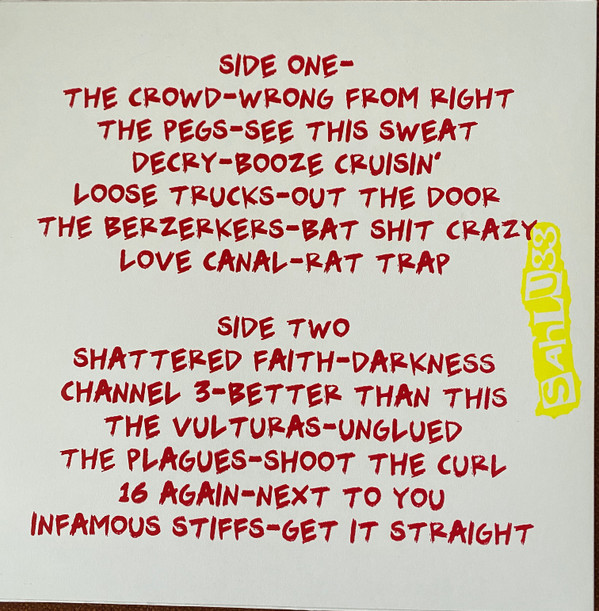 SIDE ONE-
THE CROWD-WRONG FROM RIGHT
THE PEGS-SEE THIS SWEAT
DECRY-BOOZE CRUISIN'
LOOSE TRUCKS-OUT THE DOOR
THE BERZERKERS-BAT SHIT CRAZY
LOVE CANAL-RAT TRAP
SIDE TWO
SHATTERED FAITH-DARKNESS
CHANNEL 3-BETTER THAN THIS
THE VULTURAS-UNGLUED
THE PLAGUES-SHOOT THE CURL
16 AGAIN-NEXT TO YOU
INFAMOUS STIFFS-GET IT STRAIGHT
SAhLU33